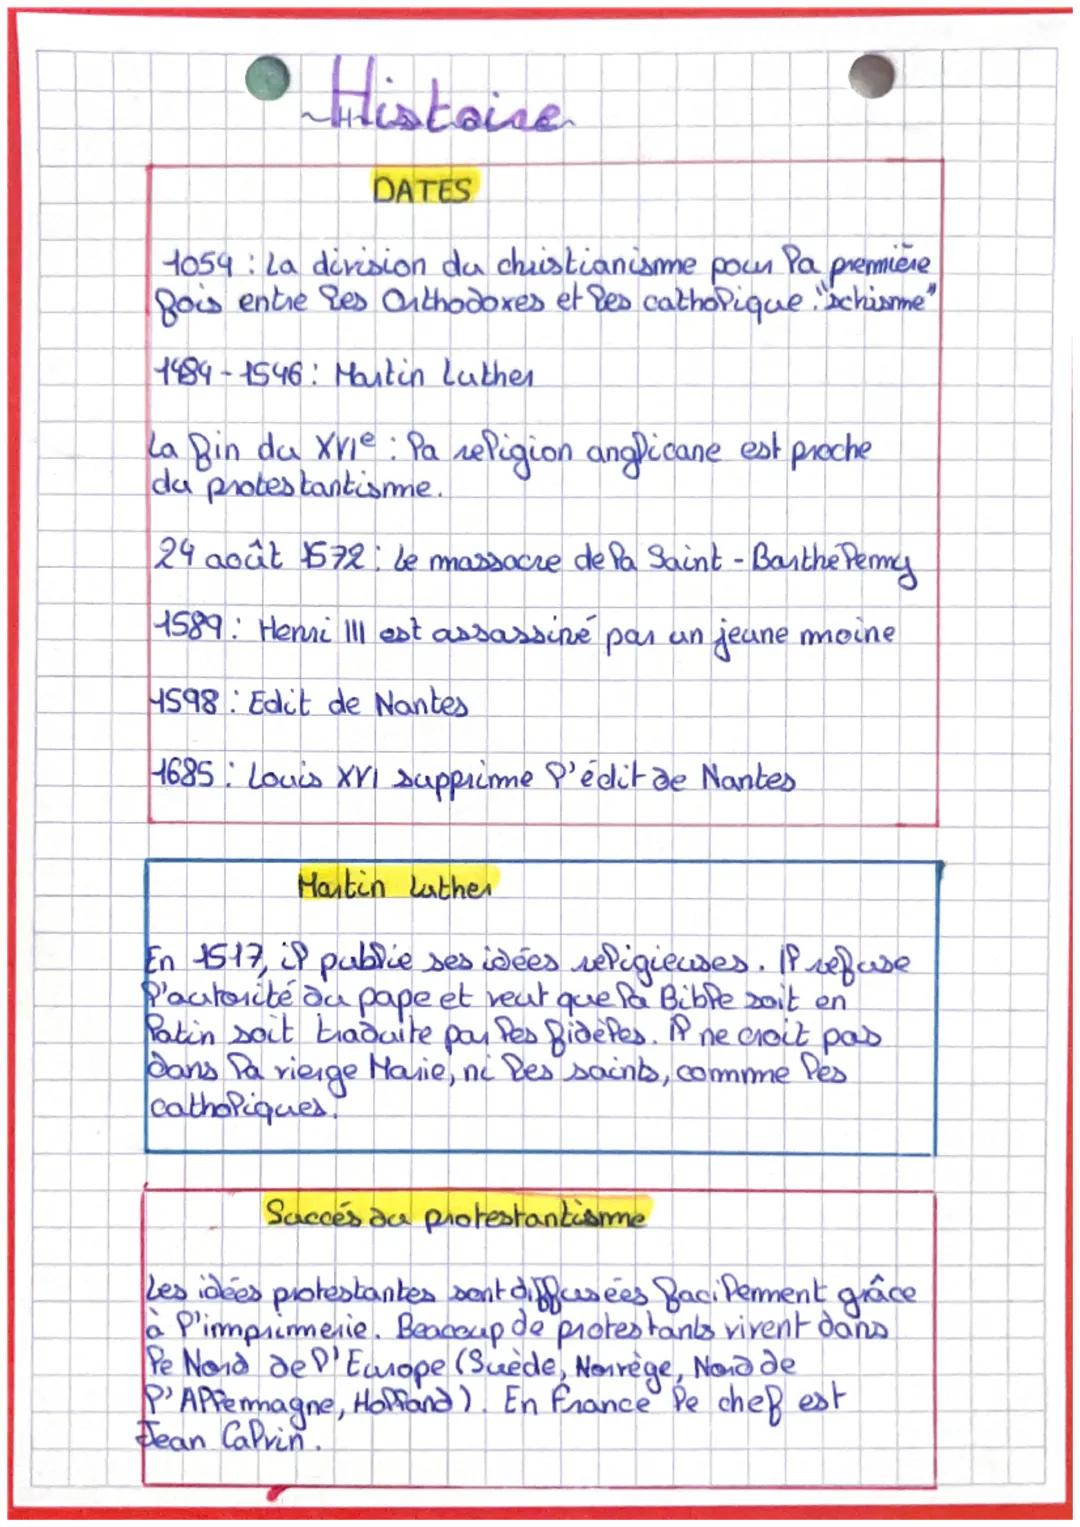 Histoire
DATES
1054 : La division du christianisme pour la première
fois entre les Orthodoxes et les catholique : "schisme"
1484 - 1546 : Martin Luther
La fin du XVIe : la religion anglicane est proche
du protestantisme.
24 août 1572 : Le massacre de la Saint - Barthelemy
1589 : Henri III est assassiné par un jeune moine
1598 : Edit de Nantes
1685 : Louis XVI supprime l'édit de Nantes
Martin Luther
En 1517, il publie ses idées religieuses. Il refuse
l'autorité du pape et veut que la Bible soit en
latin soit traduite par les fidèles. Il ne croit pas
dans la vierge Marie, ni les saints, comme les
catholiques.
Succés du protestantisme
Les idées protestantes sont diffusées facilement grâce
à l'imprimerie. Beacoup de protestants vivent dans
le Nord de l'Europe (Suède, Norvège, Nord de
l'Allemagne, Holland). En France le chef est
Jean Calvin.